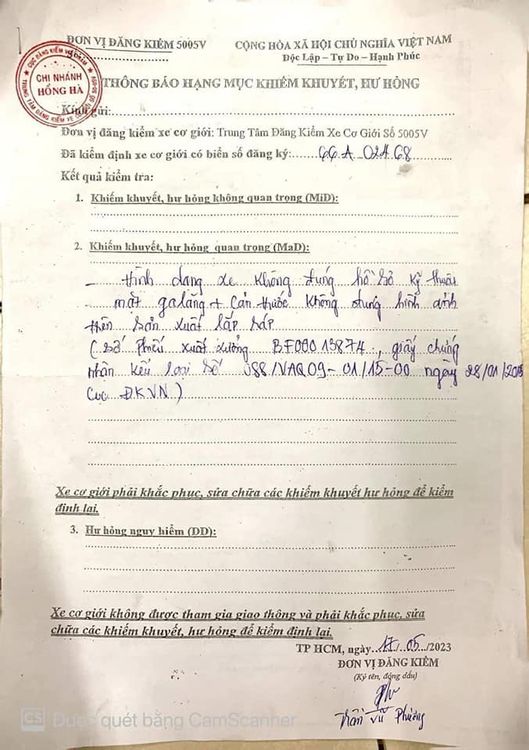 ĐƠN VỊ ĐĂNG KIỂM 5005V
CỘNG HÒA XÃ HỘI CHỦ NGHĨA VIỆT NAM
Độc Lập – Tự Do – Hạnh Phúc
CHI NHÁNH
HỒNG HÀ
THÔNG BÁO HẠNG MỤC KHIẾM KHUYẾT, HƯ HỎNG
Kính gửi:
Đơn vị đăng kiểm xe cơ giới: Trung Tâm Đăng Kiểm Xe Cơ Giới Số 5005V
Đã kiểm định xe cơ giới có biển số đăng ký: 66A 02468
Kết quả kiểm tra:
1. Khiếm khuyết, hư hỏng không quan trọng (MiD):
2. Khiếm khuyết, hư hỏng quan trọng (MaD):
- Hình dạng xe không đúng hồ sơ kỹ thuật
mặt galăng + Cản trước không đúng hình ảnh
trên Sản xuất lắp ráp
(Số Phiếu xuất xưởng BF00013874, giấy chứng
nhận kiểu loại số 088/VAQ09-01/15-00 ngày 28/01/
Cục ĐKVN)
Xe cơ giới phải khắc phục, sửa chữa các khiếm khuyết hư hỏng để kiểm
định lại.
3. Hư hỏng nguy hiểm (DD):
Xe cơ giới không được tham gia giao thông và phải khắc phục, sửa
chữa các khiếm khuyết, hư hỏng để kiểm định lại.
TP HCM, ngày 17/05/2023
ĐƠN VỊ ĐĂNG KIỂM
(Ký tên, đóng dấu)
Trần Vũ Phương
CS Được quét bằng CamScanner